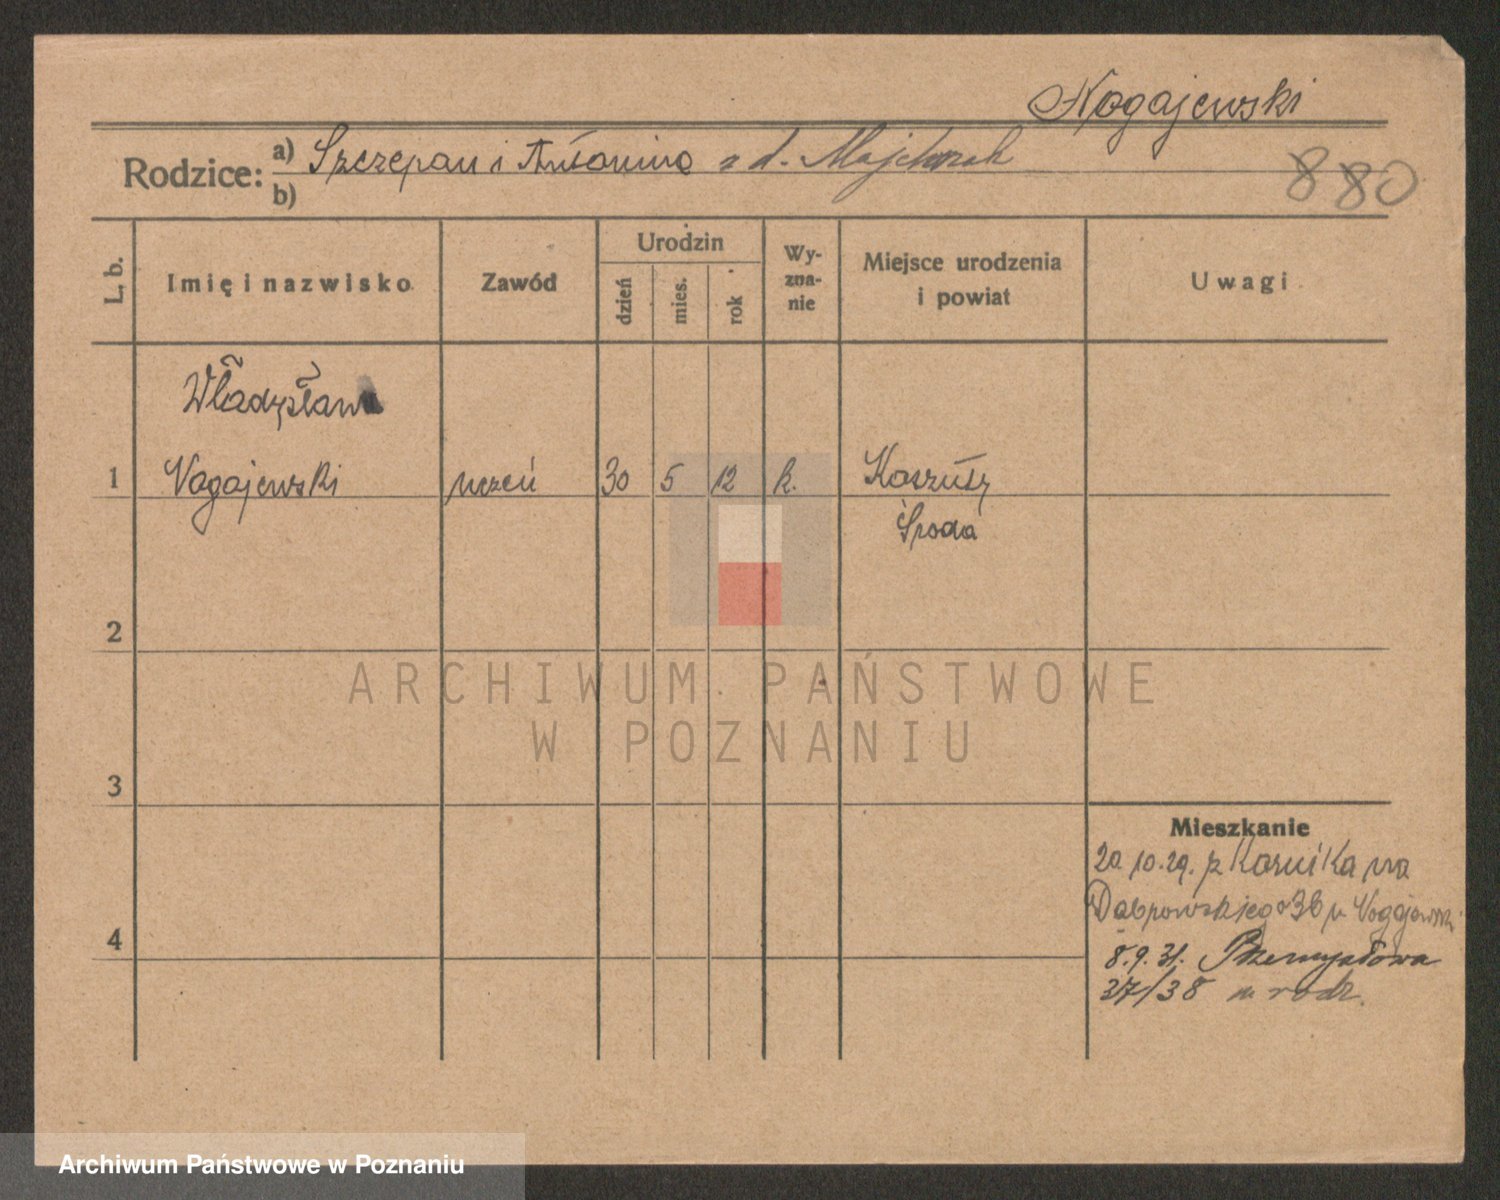 Nogajewski
Rodzice: a) Szczepan i Antonina z d. Majchrzak
b)
880
L. b.
Imię i nazwisko
Zawód
Urodzin
dzień
mies.
rok
Wy-
zna-
nie
Miejsce urodzenia
i powiat
Uwagi
Władysław
1 Nogajewski uczeń 30 5 12 k. Koszuty
Środa
2
ARCHIWUM PAŃSTWOWE
W POZNANIU
3
Mieszkanie
20.10.29. z Kórnika na
Dąbrowskiego 36 u Nogajewski
4
8.9.31. Przemysłowa
37/38 u rodz.
Archiwum Państwowe w Poznaniu